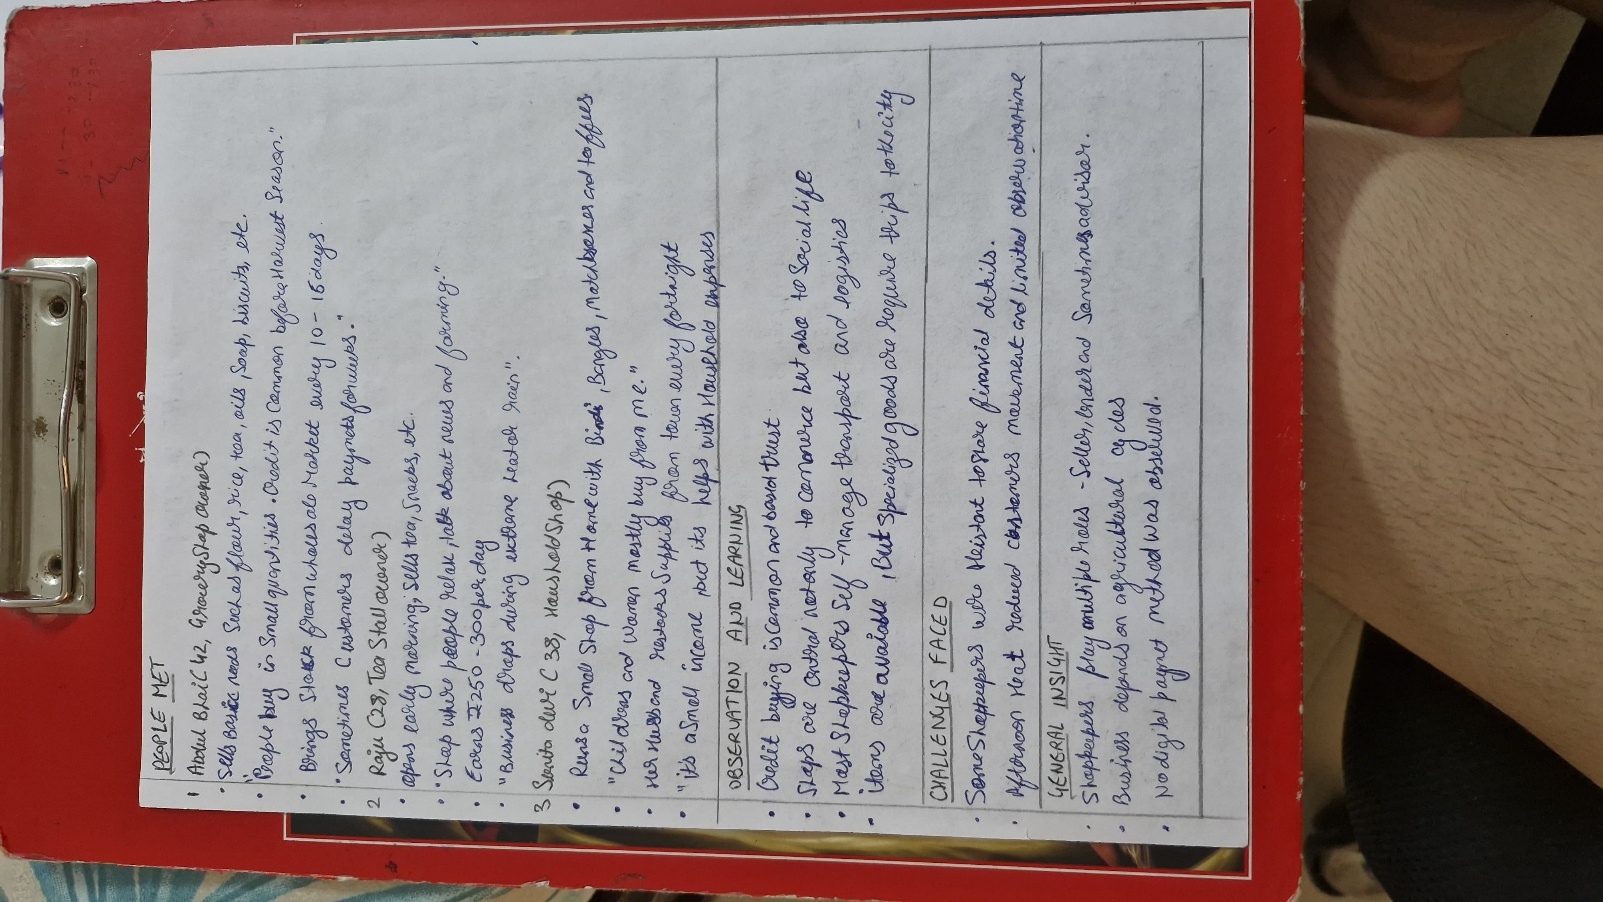 PEOPLE MET
1 Abdul Bhai (42, Grocery Shop owner)
• Sells basic needs Such as flour, rice, tea, oils, Soap, biscuits, etc.
• "People buy in Small quantities. Credit is Common before Harvest Season."
• Brings Stock from wholesale Market every 10 - 15 days.
• "Sometimes Customers delay paynets for weeks."
2 Raju (28, Tea Stall owner)
• opens early morning; Sells tea, Snacks, etc.
• "Shop where people relax, talk about news and farming."
• Earns ₹250 - 300 per day
• "Business drops during extreme heat or rain".
3 devi (38, Household Shop)
• Runs a Small Shop from Home with Bindi, Bangles, Matchboxes and toffees
• "Childrens and Women mostly buy from me."
• Her Husband restocks Supplies from town every fortnight
• "its a Small income but its helps with Household expenses
OBSERVATION AND LEARNING
• Credit buying is Common and based trust
• Shops are Central not only to commerce but also to Social life
• Most Shopkeepers Self - manage transport and logistics
• items are available, But Specialized goods are require trips to the city
CHALLENGES FACED
• Some Shopkeepers were to share financial details.
• Afternoon Heat reduced customers movement and limited observation time
GENERAL INSIGHT
• Shopkeepers play multiple roles - Seller, lender and Sometimes advisor.
• Business depends on agricultural cycles
• No digital paynet method was observed.